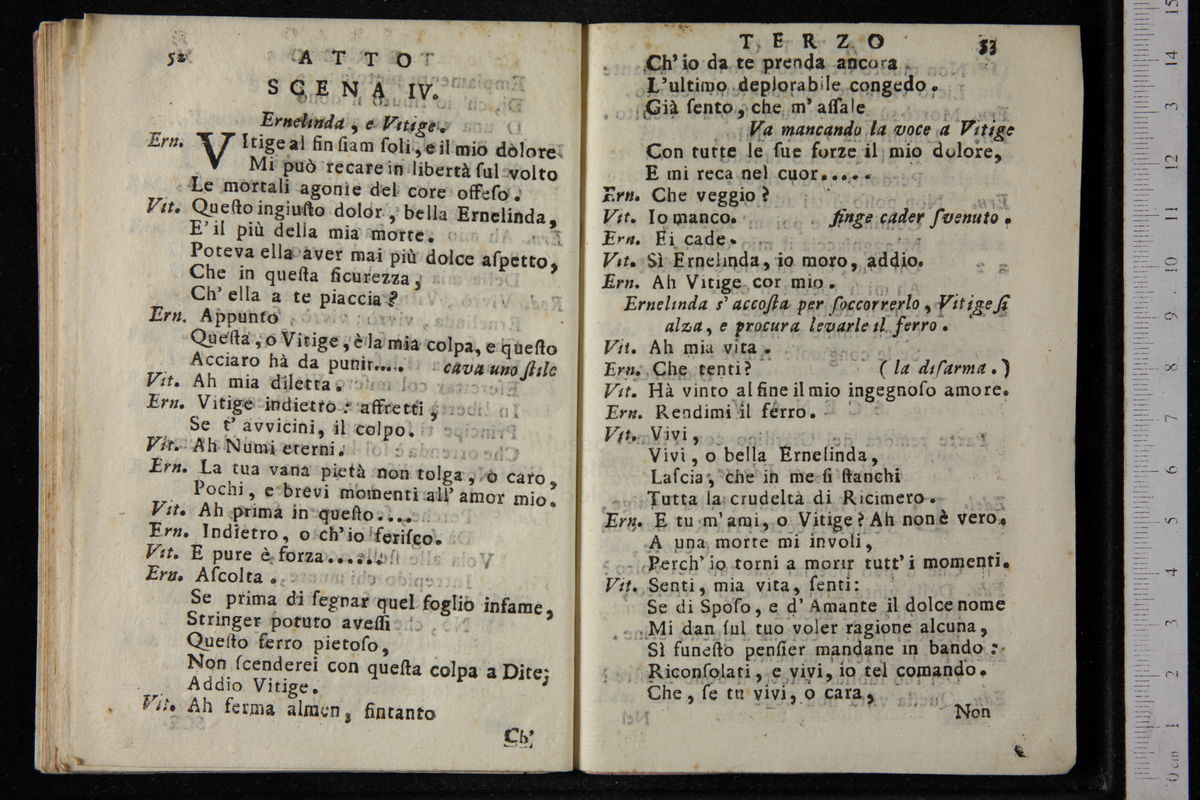 52
ATTO
SCENA IV.
Ernelinda, e Vitige.
Ern. VItige al fin ſiam ſoli, e il mio dolore
Mi può recare in libertà ſul volto
Le mortali agonìe del core offeſo.
Vit. Queſto ingiuſto dolor, bella Ernelinda,
E' il più della mia morte.
Poteva ella aver mai più dolce aſpetto,
Che in queſta ſicurezza,
Ch' ella a te piaccia?
Ern. Appunto
Queſta, o Vitige, è la mia colpa, e queſto
Acciaro hà da punir..... cava uno ſtile
Vit. Ah mia diletta.
Ern. Vitige indietro: affretti,
Se t' avvicini, il colpo.
Vit. Ah Numi eterni.
Ern. La tua vana pietà non tolga, o caro,
Pochi, e brevi momenti all' amor mio.
Vit. Ah prima in queſto....
Ern. Indietro, o ch'io feriſco.
Vit. E pure è forza......
Ern. Aſcolta.
Se prima di ſegnar quel foglio infame,
Stringer potuto aveſſi
Queſto ferro pietoſo,
Non ſcenderei con queſta colpa a Dite;
Addio Vitige.
Vit. Ah ferma almen, fintanto
Ch'
TERZO
53
Ch' io da te prenda ancora
L'ultimo deplorabile congedo.
Già ſento, che m' aſſale
Va mancando la voce a Vitige
Con tutte le ſue forze il mio dolore,
E mi reca nel cuor.....
Ern. Che veggio?
Vit. Io manco. finge cader ſvenuto.
Ern. Ei cade.
Vit. Sì Ernelinda, io moro, addio.
Ern. Ah Vitige cor mio.
Ernelinda s' accoſta per ſoccorrerlo, Vitige ſi
alza, e procura levarle il ferro.
Vit. Ah mia vita.
Ern. Che tenti? (la diſarma.)
Vit. Hà vinto al fine il mio ingegnoſo amore.
Ern. Rendimi il ferro.
Vit. Vivi,
Vivi, o bella Ernelinda,
Laſcia, che in me ſi ſtanchi
Tutta la crudeltà di Ricimero.
Ern. E tu m' ami, o Vitige? Ah non è vero.
A una morte mi involi,
Perch' io torni a morir tutt' i momenti.
Vit. Senti, mia vita, ſenti:
Se di Spoſo, e d' Amante il dolce nome
Mi dan ſul tuo voler ragione alcuna,
Sì funeſto penſier mandane in bando:
Riconſolati, e vivi, io tel comando.
Che, ſe tu vivi, o cara,
Non